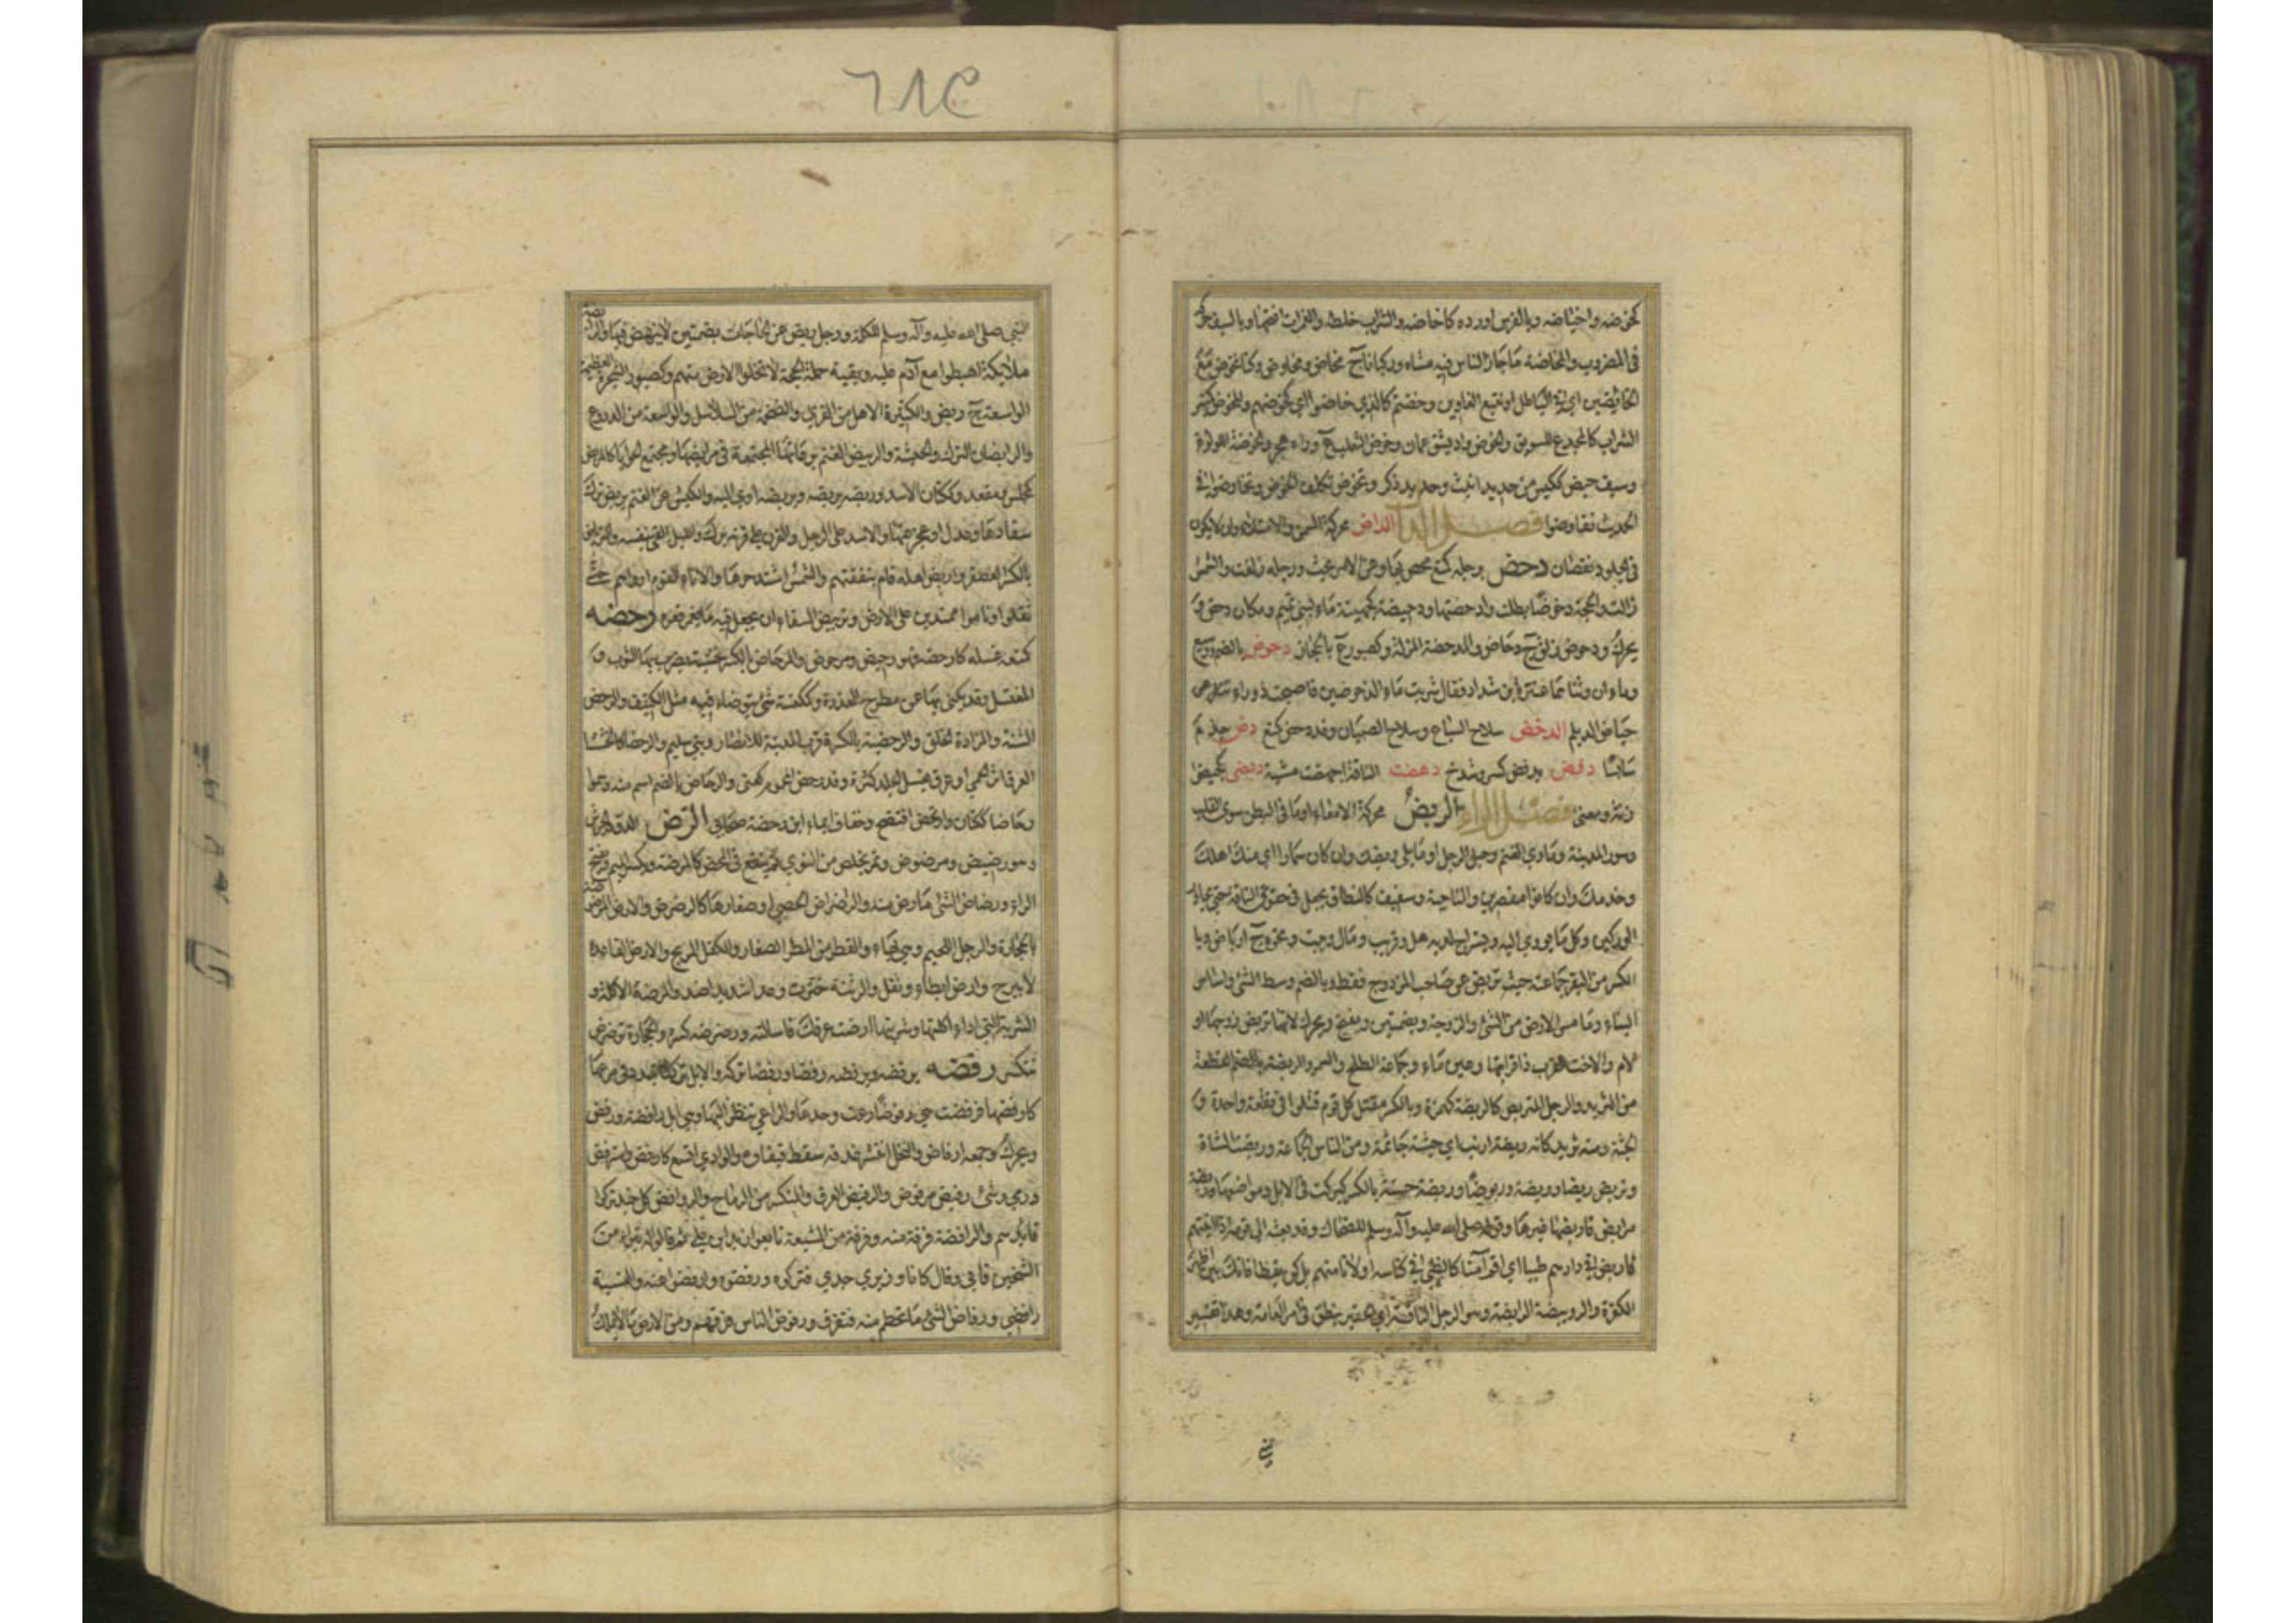 كخوضه واختاضه وبالفرس اورده كاخاضه والشراب خلطه والغمرات اقتحمها وبالسيف حركه
في المضروب والمخاضة ما جاز الناس فيه مشاة وركبانا ج مخاض ومخاوض وكنا نخوض مع
الخائضين اي في الباطل او نتبع الغاوين وخضتم كالذي خاضوا اي كخوضهم والمخوض كمنبر
للشراب كالمجدح للسويق والخوض واد بشق عمان وخوض الثعلب ع وراء هجر والخوضة اللؤلؤة
وسيف خيض ككيس من حديد انيث وحديد ذكر وتخوض تكلف الخوض وتخاوضوا في
الحديث تفاوضوا فصل الدال الداض محركة السمن والامتلاء وان لا يكون
في الجلود نقصان دحض برجله كمنع فحص بها وعن الامر بحث ورجله زلقت والشمس
زالت والحجة دحوضا بطلت وادحضتها ودحيضة كجهينة ماء لبني تميم ومكان دحض و
يحرك ودحوض زلق ج دحاض والمدحضة المزلة وكصبور ع بالحجاز دحوض بالضم ووسيع
وماءان وثناهما عنترة بن شداد فقال شربت بماء الدحرضين فاصبحت زوراء تنفر عن
حياض الديلم الدخض سلاح السباع وسلاح الصبيان وقد دخض كمنع دض خدم
سائسا دفض يدفض كسر وشدخ دهضت الناقة اجهضت مشية ديضى كجيضى
زنة ومعنى فصل الراء الربض محركة الامعاء او ما في البطن سوى القلب
وسور المدينة وماوى الغنم وحبل الرحل او ما يلي ومنك وان كان سمارا اي منك اهلك
وخدمك وان كانوا مقصرين والناحية وسفيف كالنطاق يجعل في حقوي الناقة حتى يجاوز
الوركين وكل ما يؤوى اليه ويستراح لديه من اهل وقريب ومال وبيت ونحوه ج ارباض وبا
لكسر من البقر جماعته حيث تربض عن صاحب المزدوج فقط وبالضم وسط الشيء واساس
البناء وما مس الارض من الشيء والزوجة وبضمتين ويفتح ويحرك لانها تربض زوجها او
الام والاخت تعزب ذا قرابتها وعين ماء وجماعة الطلح والسمر والربضة بالضم القطعة
من الثريد والرجل المتربض كالربضة كهمزة وبالكسر مقتل كل قوم قتلوا في بقعة واحدة و
الجثة ومنه ثريد كانه ربضة ارنب اي جثته جاثمة ومن الناس الجماعة وربضت الشاة
وتربض ربضا وربضة وربوضا وربضة حسنة بالكسر كبركت في الابل ومواضعها
مرابض واربضها غيرها وقوله صلى الله عليه وآله وسلم للضحاك وقد بعثه الى قومه اذا اتيتهم
فاربض في دارهم ظبيا اي اقم آمنا كالظبي في كناسه او لا تامنهم بل كن يقظا فانك بين اظهر
الكفرة والرويبضة تصغير الرابضة وهو الرجل التافه اي الحقير ينطق في امر العامة وهذا تفسير
النبي صلى الله عليه وآله وسلم للكلمة ورجل ربض عن الحاجات بضمتين لا ينهض فيها والرابضة
ملائكة اهبطوا مع آدم عليه وبقية حملة الحجة لا تخلو الارض منهم وكصبور الشجرة العظيمة
الواسعة ج ربض والكثيرة الاهل من القرى والضخمة من السلاسل والواسعة من الدروع
والرابضان الترك والحبشة والربيض الغنم برعاتها المجتمعة في مرابضها ومجتمع الحوايا كالمربض
كمجلس ومقعد وككتان الاسد وربضه يربضه ويربضه اوى اليه والكبش عن الغنم يربض ترك
سفادها وعدل او عجز عنها والاسد على الرجل والقرن على قرنه برك والليل القى بنفسه والترباض
بالكسر العصفر واربض اهله قام بنفقتهم والشمس اشتد حرها والاناء القوم ارواهم حتى
ثقلوا وناموا ممتدين على الارض وتربيض السقاء ان يجعل فيه ما يغمر قعره رحضه
كمنعه غسله كارحضه فهو رحيض ومرحوض والمرحاض بالكسر خشبة يضرب بها الثوب و
المغتسل وقد يكنى بها عن مطرح العذرة وكمكنسة شيء يتوضاء فيه مثل الكنيف والرحض
الشنة والمزادة الخلق والرحضية بالكسر ة قرب المدينة للانصار وبني سليم والرحضاء كالخششاء
العرق اثر الحمى او عرق يغسل الجلد كثرة وقد رحض المحموم كعنى والرحاض بالضم اسم منه وسموا
رحاضا ككتان وارتحض افتضح وخفاف ايماء ابن رحضة صحابي الرض الدق والجرش
وهو رضيض ومرضوض وتمر يخلص من النوى ثم ينقع في المخض كالمرضة وكسر الميم وتفتح
الراء ورضاض الشيء ما رض منه والرضراض الحصى او صغارها كالرضرض والارض المرضوضة
بالحجارة والرجل اللحيم وهي بهاء والقطر من المطر الصغار والكفل المرتج والارض القاعدة
لا تبرح وارض ابطاء وثقل والرثيئة خثرت وعدا شديدا ضد والمرضة الاكلة او
الشربة التي اذا اكلتها وشربتها ارضت عرقك فاسالته ورضرضه كسره والحجارة ترضرض
تتكسر رفضه يرفضه ويرفضه رفضا ورفضا تركه والابل تركها تبدد في مرعاها
كارفضها فرفضت هي رفوضا رعت وحدها والراعي ينظر اليها وهي ابل رافضة ورفض
ويحرك وجمعه ارفاض والنخل انتشر عذقه وسقط قيقاؤه والوادي اتسع كارفض واسترفض
ورمى وشيء رفيض مرفوض والرفيض العرق والمتكسر من الرماح والروافض كل جند تركوا
قائدهم والرافضة فرقة منه وفرقة من الشيعة بايعوا زيد بن علي ثم قالوا له تبرأ من
الشيخين فابى وقال كانا وزيري جدي فتركوه ورفضوه وارفضوا عنه والنسبة
رافضي ورفاض الشيء ما تحطم منه فتفرق ورفوض الناس فرقهم ومن الارض ما لا يملك